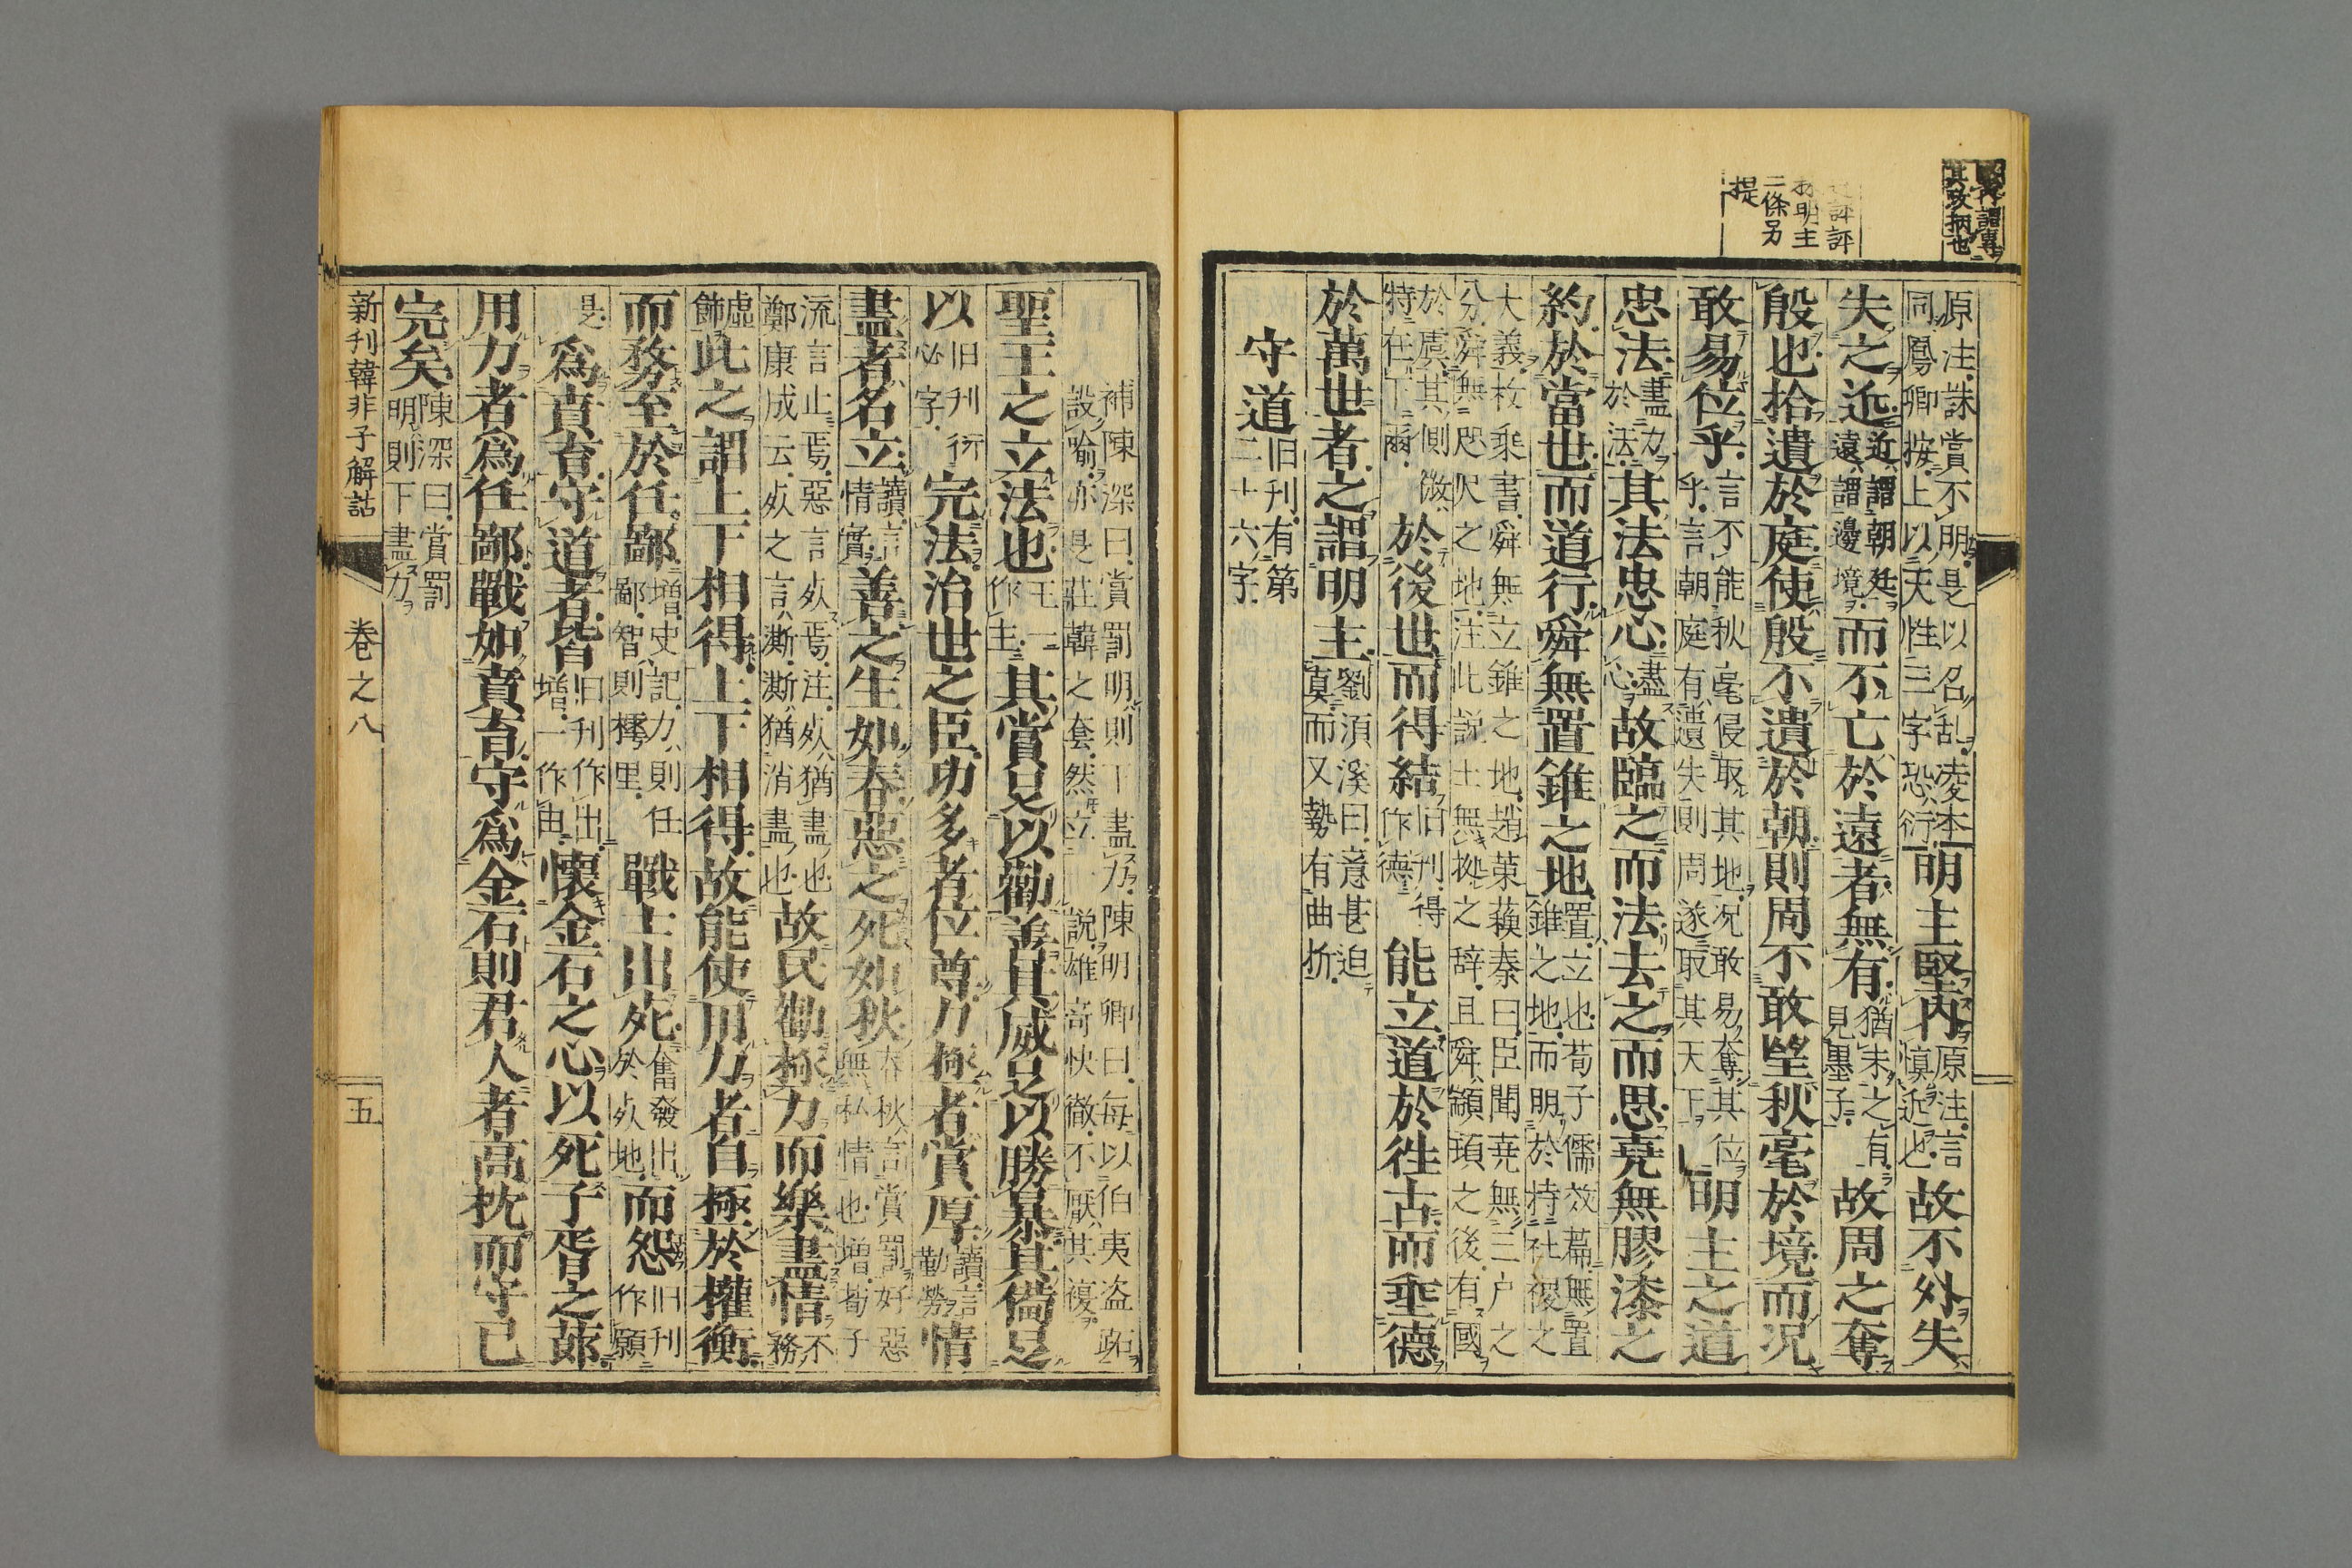 其政柄也
評評
明主
二條另
提
原注誅賞不明是以名乱凌本
同鳳卿按上以天性三字恐衍
明主堅内
原注言
慎近也
故不外失
失之近
近謂朝廷
遠謂邊境
而不亡於遠者無有
猶未之有
見墨子
故周之奪
殷也拾遺於庭使殷不遺於朝則周不敢望秋毫於境而況
敢易位乎
言不能秋毫侵取其地況敢易奪其位
乎言朝庭有遺失則周遂取其天下
明主之道
忠法
盡力
於法
其法忠心
盡
心
故臨之而法去之而思堯無膠漆之
約於當世而道行舜無置錐之地
置立也荀子儒效篇無置
錐之地而明於持社稷之
大義枚乘書舜無立錐之地趙策蘓秦曰臣聞堯無三户之
分舜無咫尺之地注此説士無拠之辞且舜顓頊之後有國
於虞其側微
特在下爾
於後世而得結
旧刊得
作德
能立道於徃古而垂德
於萬世者之謂明主
劉湏溪曰意甚迫
真而又勢有曲折
守道
旧刊有第
二十六字
補陳深曰賞罰明則下盡力陳明卿曰每以伯夷盗跖
設喻亦是莊韓之套然立一説雄奇快徹不厭其複
聖王之立法也
王一
作主
其賞足以勸善其威足以勝暴其備足
以
旧刊衍
必字
完法治世之臣功多者位尊力極者賞厚
讀言
勤勞
情
盡者名立
讀言
情實
善之生如春惡之死如秋
春秋言賞罰好惡
無私情也増荀子
流言止焉惡言㱥焉注㱥猶盡也
鄭康成云㱥之言澌澌猶消盡也
故民勸極力而樂盡情
不
務
虚
飾
此之謂上下相得上下相得故能使用力者自極於權衡
而務至於任鄙
増史記力則任
鄙智則樗里
戰士出死
奮發出
於㱥地
而怨
旧刊
作願
是
爲賁育守道者皆
旧刊作出
増一作由
懐金石之心以死子胥之莭
用力者爲任鄙戰如賁育守爲金石則君人者高枕而守已
完矣
陳深曰賞罰
明則下盡力
新刊韓非子解詁
卷之八
五